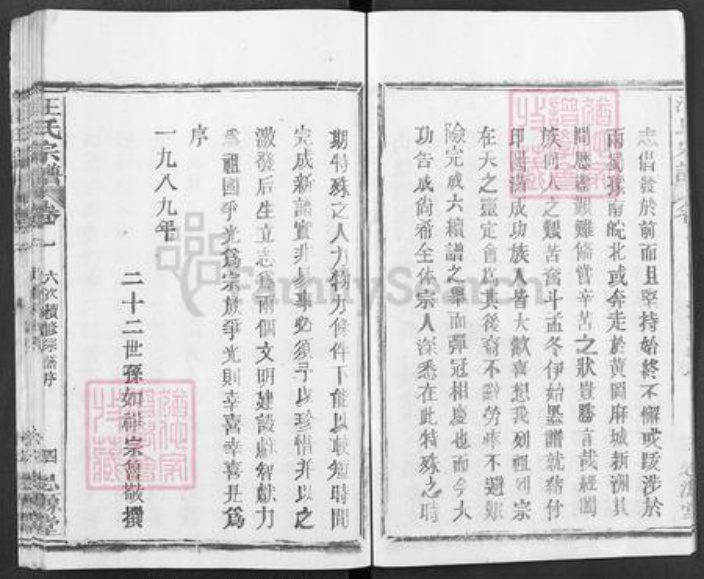 志倡發於前而且堅持始終不懈或跋涉於
兩蜀豫南皖北或奔走於黃岡麻城新洲其
間歷盡艱難備嘗辛苦之狀貴勝言哉經闔
族同人之艱苦奮斗孟冬伊始墨譜就緒付
印圓滿成功族人皆大歡喜想我列祖列宗
在天之靈定會為其後裔不辭勞瘁不避艱
險完成六續譜之舉而彈冠相慶也而今大
功告成尚希全体宗人深悉在此特殊之時
期特殊之人力物力條件下能以較短時間
完成新譜實非易事必須予以珍惜并以之
激發后生立志為兩個文明建設獻智獻力
為祖國爭光為宗族爭光則幸喜幸喜是為
序
一九八九年
二十二世孫如祥宗會敬撰
汪氏宗譜
卷一
六次續修宗譜序
四
思源堂
FamilySearch